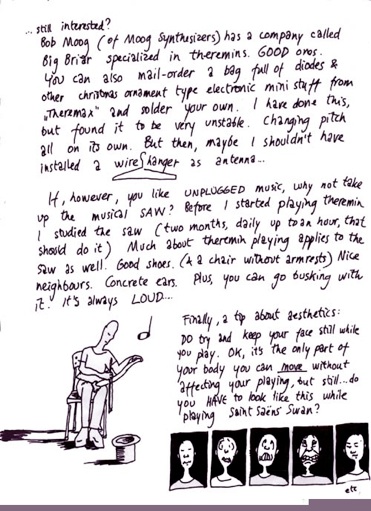 ...still interested?
Bob Moog (of Moog Synthesizers) has a company called
Big Briar specialized in theremins. GOOD ones.
You can also mail-order a bag full of diodes &
other christmas ornament type electronic mini stuff from
"Theremax" and solder your own. I have done this,
but found it to be very unstable. Changing pitch
all on its own. But then, maybe I shouldn't have
installed a wire hanger as antenna...
If, however, you like UNPLUGGED music, why not take
up the musical SAW? Before I started playing theremin
I studied the saw (two months, daily up to an hour, that
should do it) Much about theremin playing applies to the
saw as well. Good shoes. (& a chair without armrests) Nice
neighbours. Concrete ears. Plus, you can go busking with
it. It's always LOUD...
Finally, a tip about aesthetics:
DO try and keep your face still while
you play. OK, it's the only part of
your body you can move without
affecting your playing, but still...do
you HAVE to look like this while
playing Saint Saëns' Swan?
etc